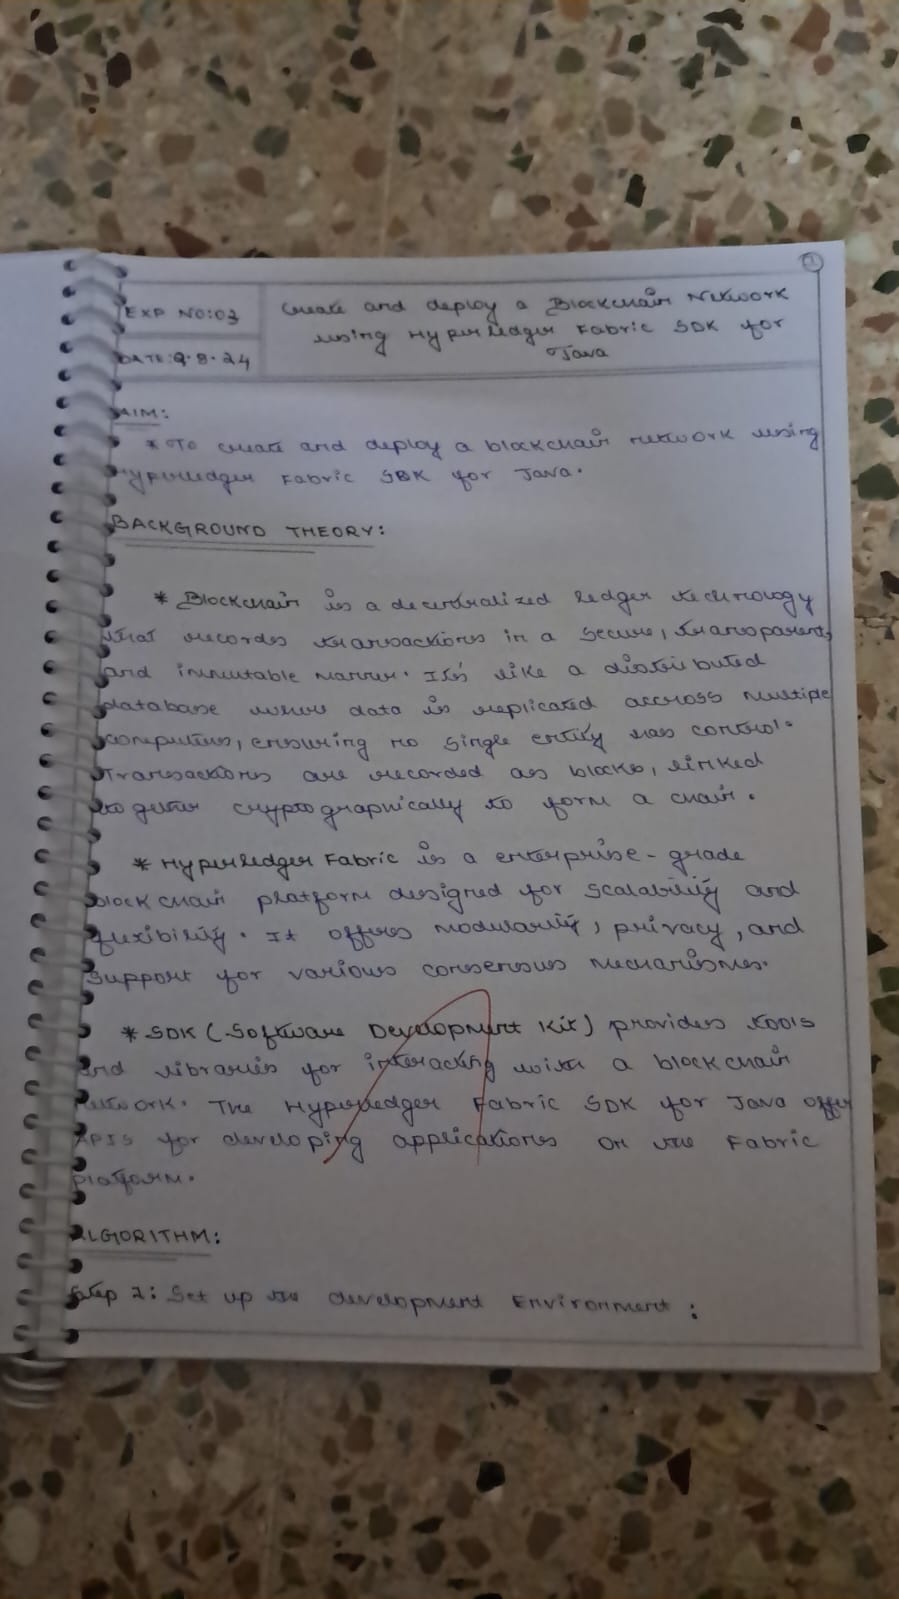 1
EXP NO:03
Create and deploy a Blockchain Network
using Hyperledger Fabric SDK for
Java
DATE:9.8.24
AIM:
* To create and deploy a blockchain network using
Hyperledger Fabric SBK for Java.
BACKGROUND THEORY:
* Blockchain is a decentralized ledger technology
that records transactions in a secure, transparent,
and immutable manner. It's like a distributed
database where data is replicated accross multiple
computers, ensuring no single entity has control.
Transactions are recorded as blocks, linked
together cryptographically to form a chain.
* Hyperledger Fabric is a enterprise-grade
blockchain platform designed for scalability and
flexibility. It offers modularity, privacy, and
support for various consensus mechanisms.
* SDK (Software Development Kit) provides tools
and libraries for interacting with a blockchain
network. The Hyperledger Fabric SDK for Java offer
APIS for developing applications on the Fabric
platform.
ALGORITHM:
Step 1: Set up the development Environment: